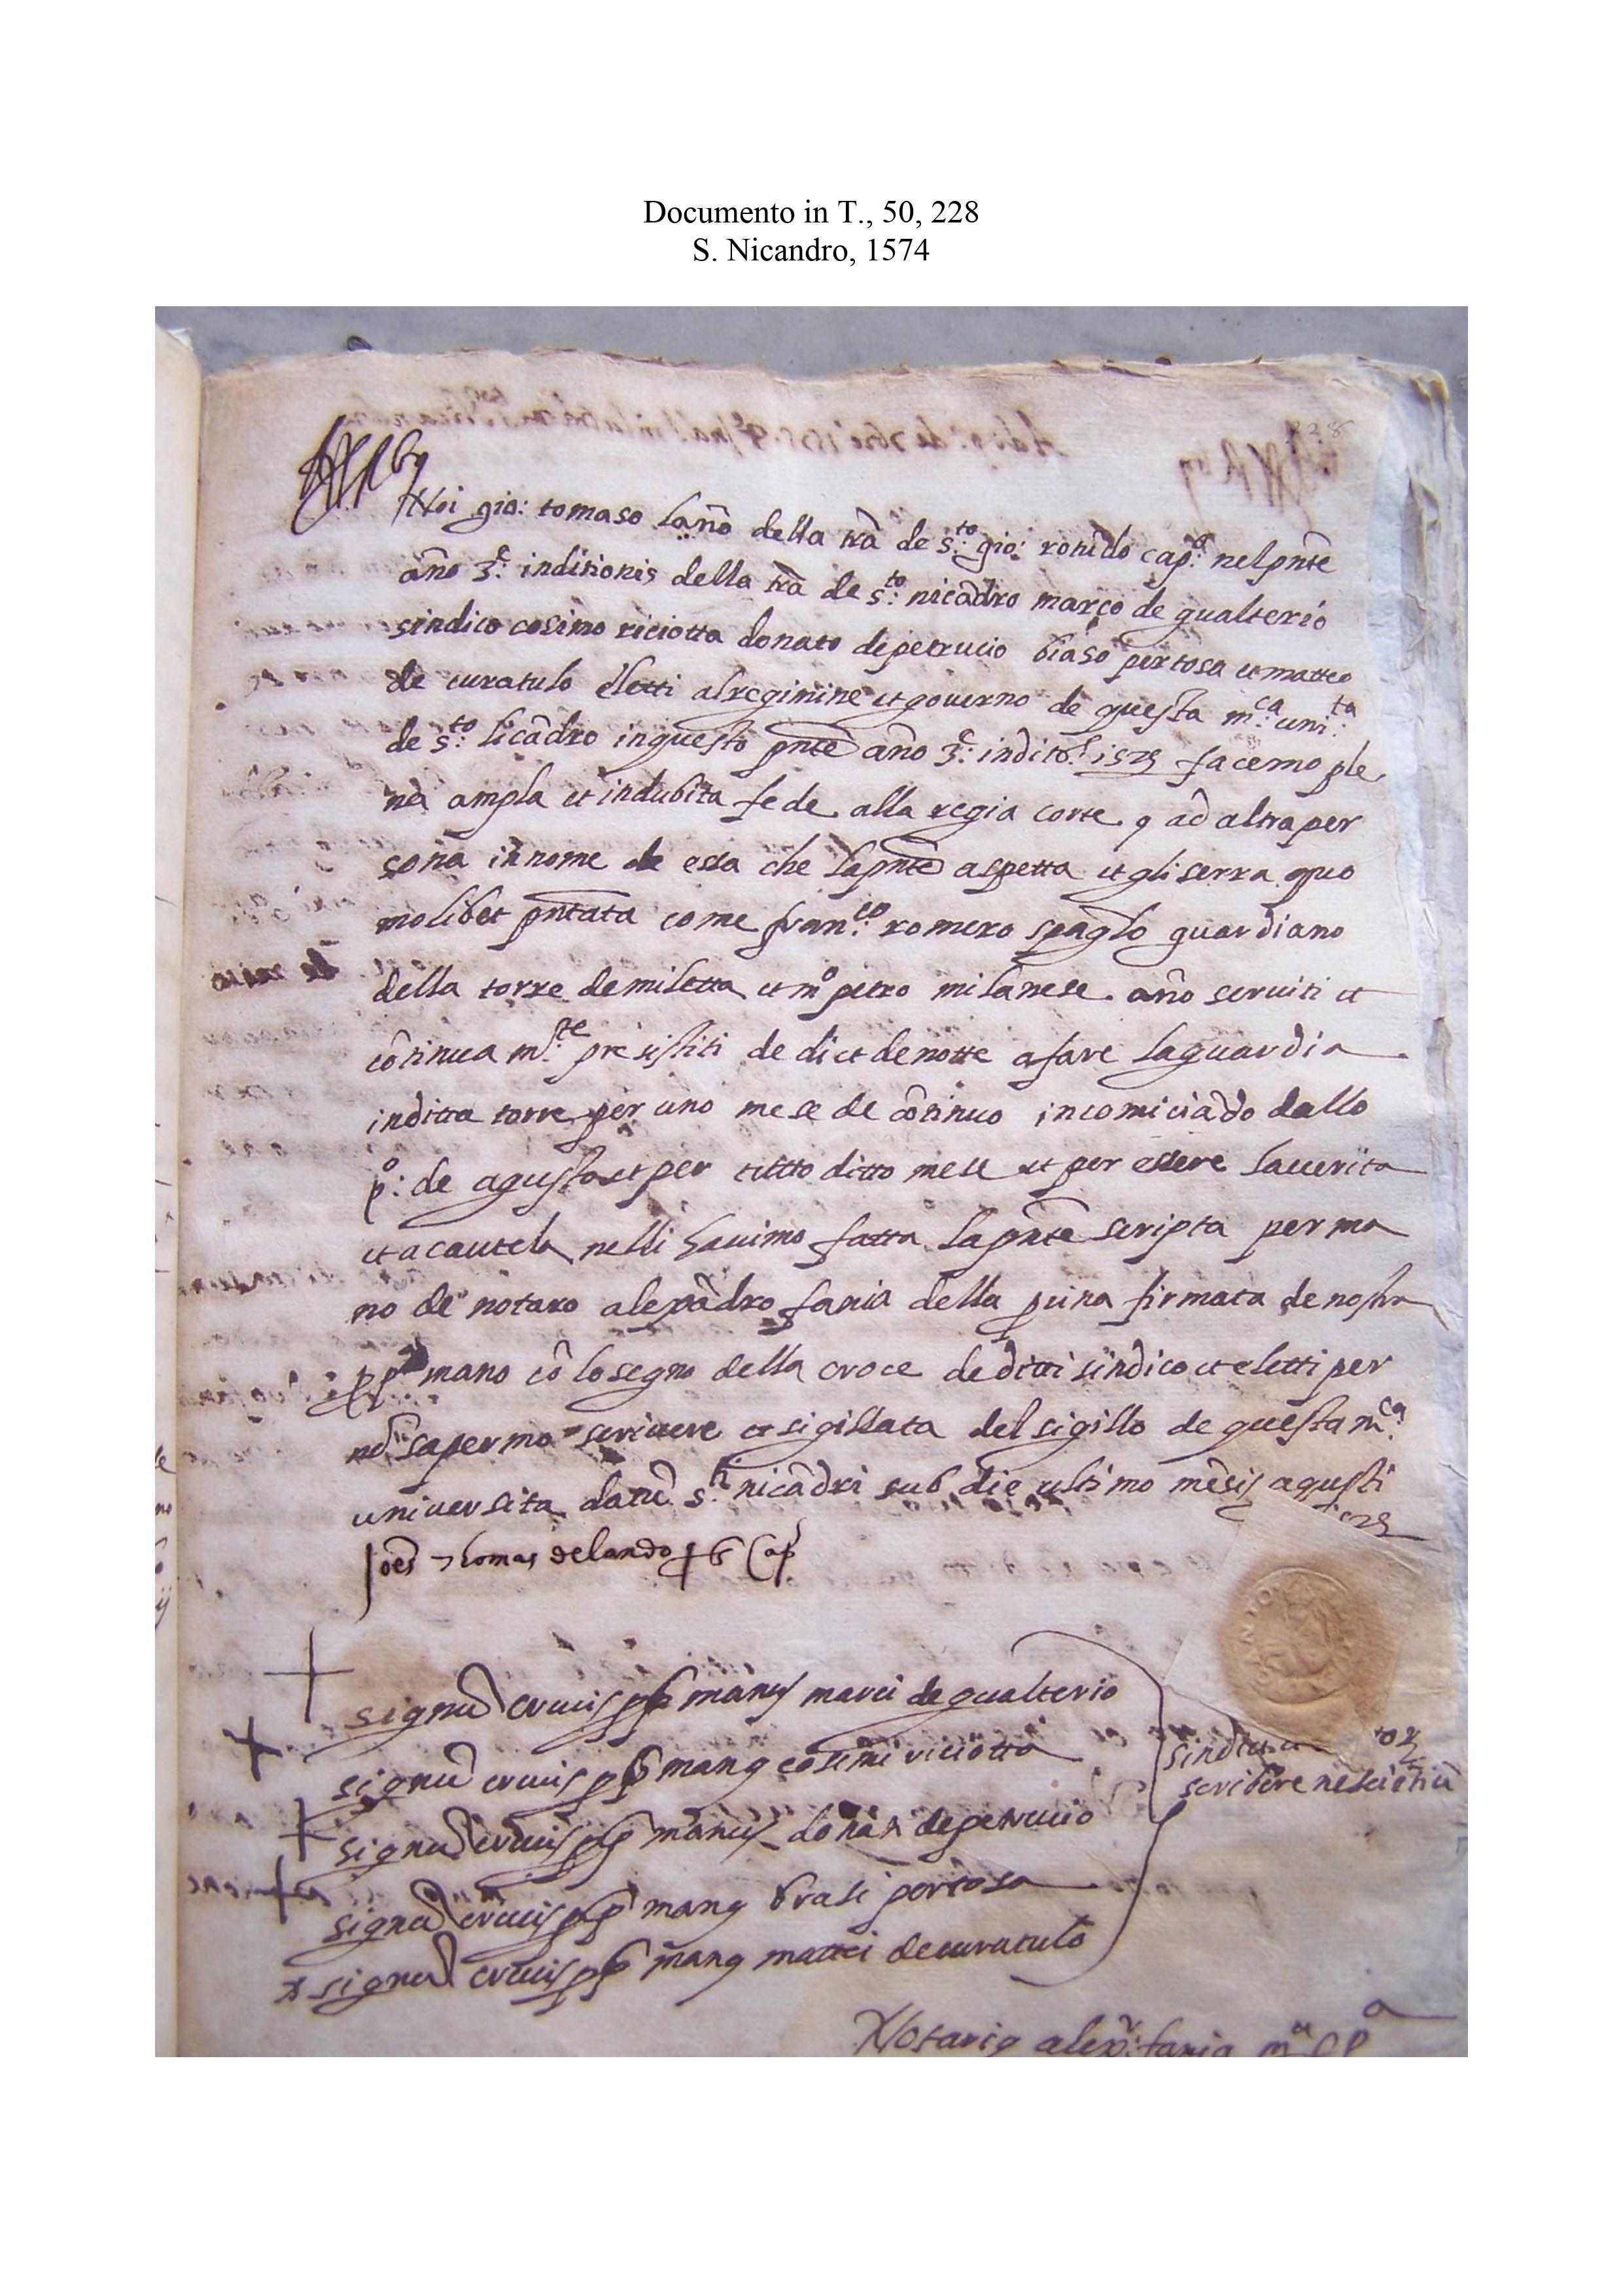 Documento in T., 50, 228
S. Nicandro, 1574
228
Noi gio: tomaso della trã de s:to gio: rotũdo cap:o nel pñte
año 3:e inditionis della trã de s:to nicãdro marco de gualterio
sindico cosimo riciotta donato de petrucio biaso pertosa et matteo
de curatulo eletti al regimine et governo de questa m:ca uni:ta
de s:to licãdro in questo pñte año 3:e facemo ple
na ampla et indubita fede alla regia corte ad altra per
sona in nome de essa che la pñte aspetta et gli serra quo
molibet pñtata come fran:co romero spaglo guardiano
della torre de miletta et m:o petro milanese año serviti et
cõtinua m:te pre sistiti de di et de notte a fare la guardia
in ditta torre per uno mese de cõtinuo incomiciãdo dallo
p:o de agusto et per tutto ditto mese et per essere la verita
et a cautela nelli havimo fatta la pñte scripta per ma
no de notaro alexãdro fania della firmata de nostra
mano cõ lo segno della croce de ditti sindico et eletti per
nõ sapermo scrivere et sigillata del sigillo de questa m:ca
universita datũ s:ti nicãdri sub die ultimo mẽsis agusti
Joẽs Thomas de lando Cap
signũ crucis manus marci de gualterio
signũ crucis manus cosimi riciotta
signũ crucis manus donati de petrucio
signũ crucis manus brasi pertosa
signũ crucis manus mattei de curatulo
scribere
Notarius alex: fania